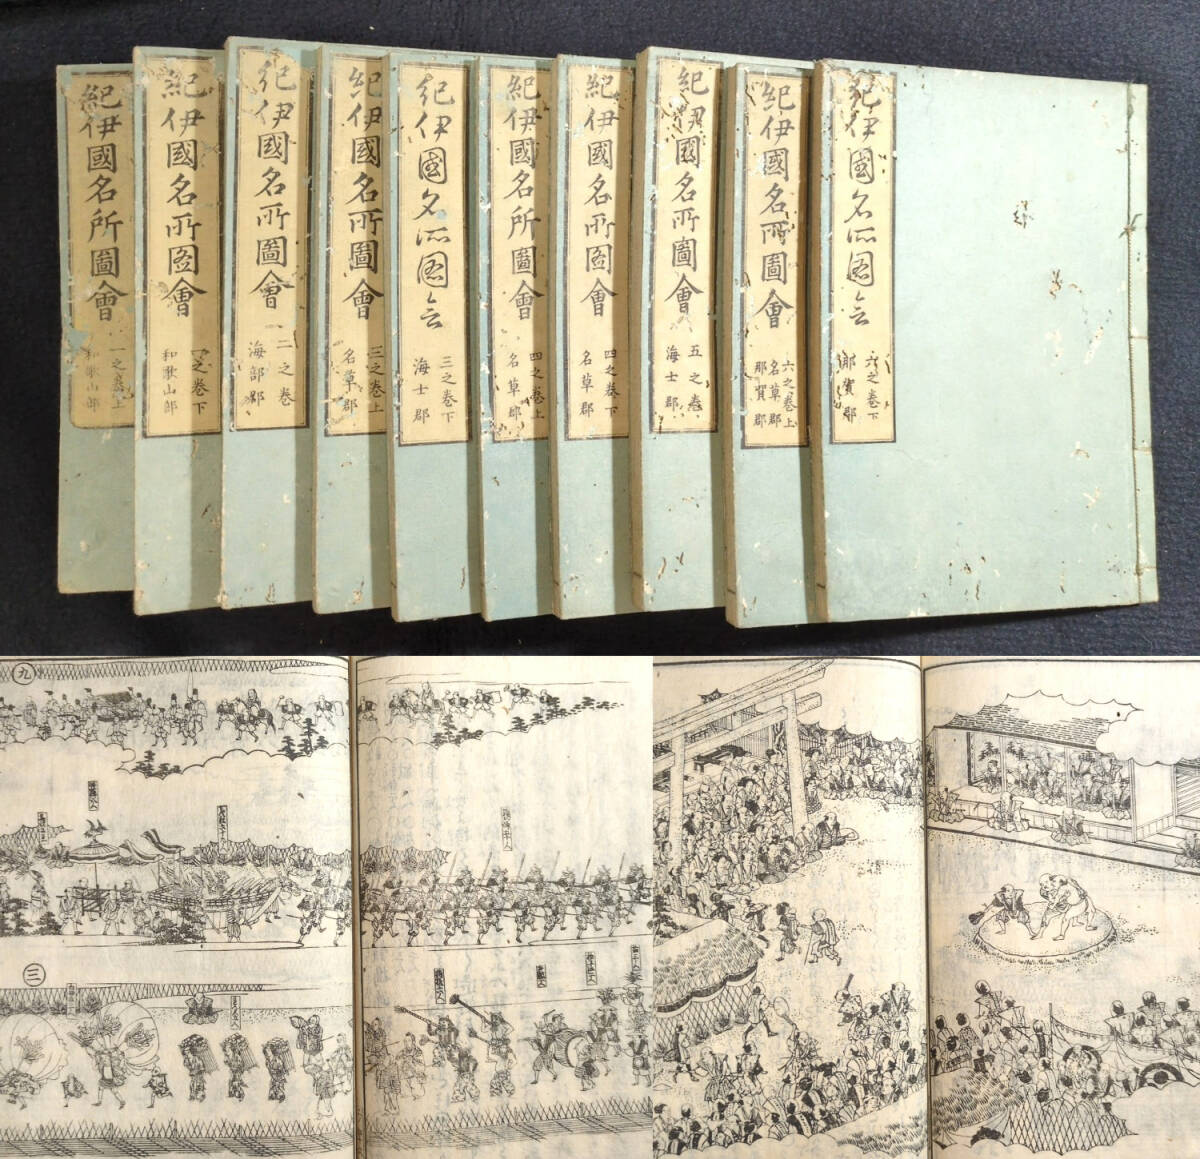 紀伊國名所圖會
一之巻上
和歌山部
紀伊國名所圖會
一之巻下
和歌山部
紀伊國名所圖會
二之巻
海部郡
紀伊國名所圖會
三之巻上
名草郡
紀伊國名所圖会
三之巻下
海士郡
紀伊國名所圖會
四之巻上
名草郡
紀伊國名所圖會
四之巻下
名草郡
紀伊國名所圖會
五之巻
海士郡
紀伊國名所圖會
六之巻上
名草郡
那賀郡
紀伊國名所圖会
六之巻下
那賀郡
九
三